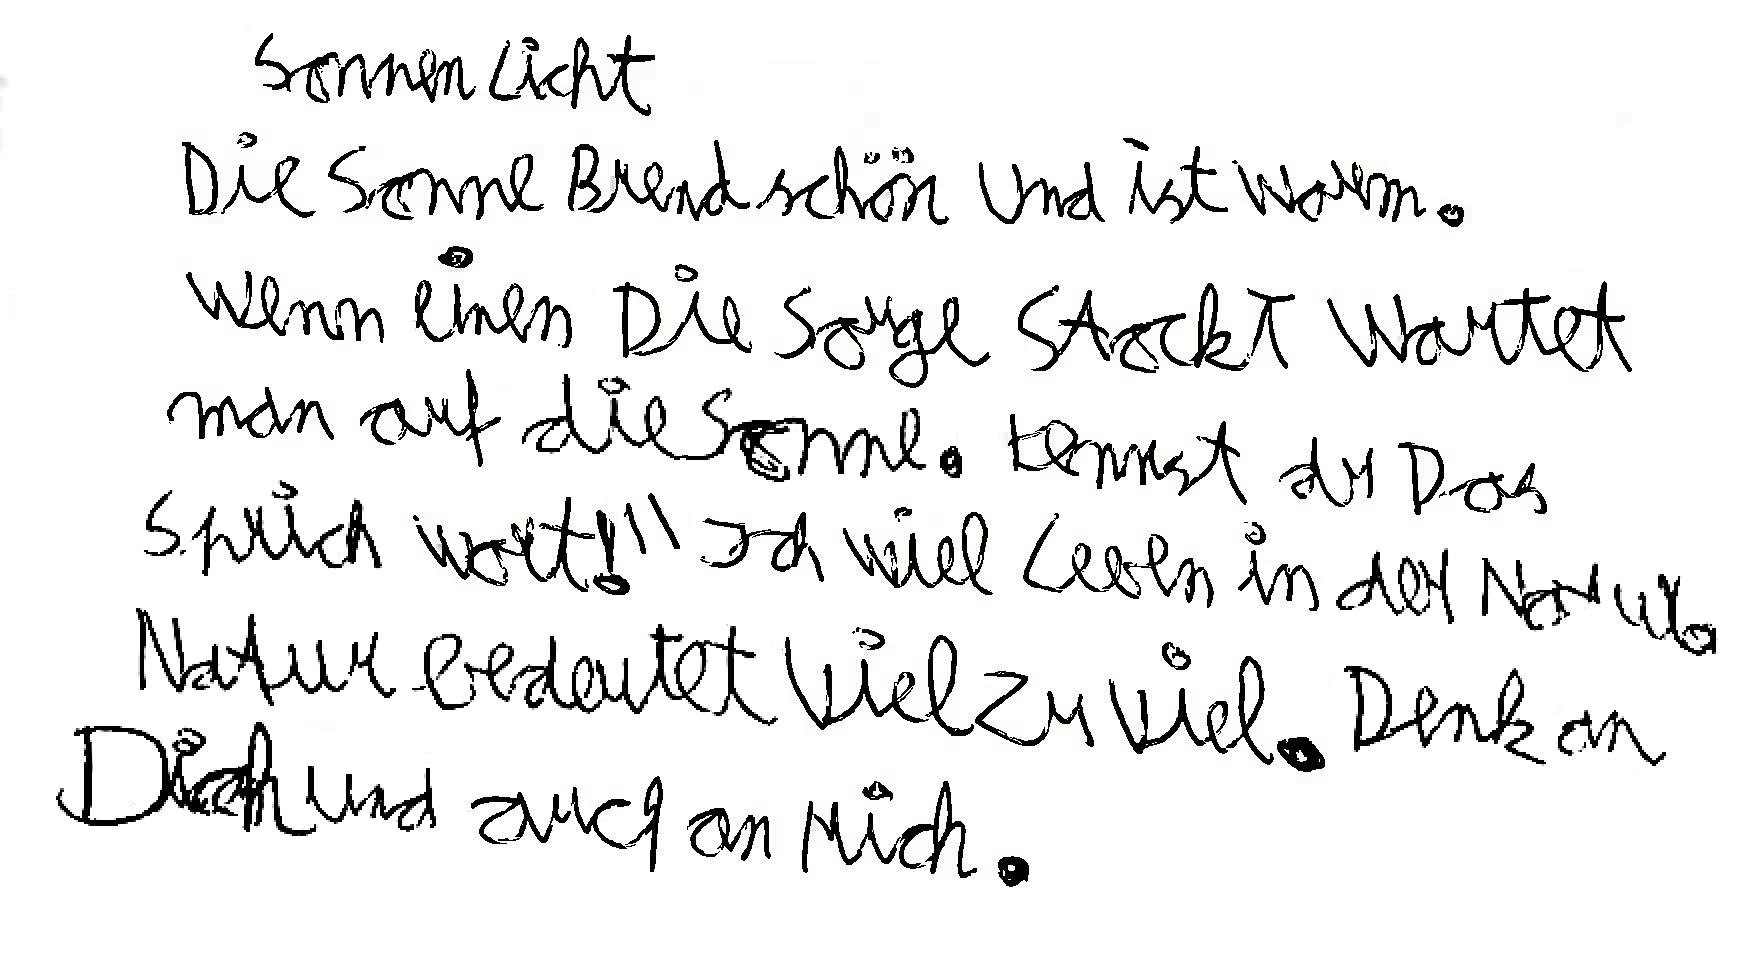 Sonnen Licht
Die Sonne Brend schön und ist warm.
Wenn einen Die Sorge Stockt Wartet
man auf die Sonne. kennst du Das
Sprich wort!" Ich wiel Leben in der Natur.
Natur bedeutet Viel zu viel. Denk an
Dich und auch an Mich.